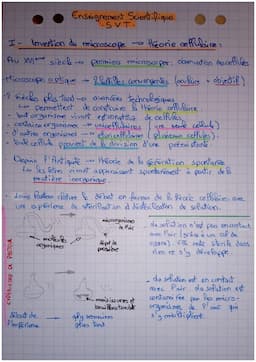 Enseignement Scientifique
S.V.T.
I - Invention du microscope → théorie cellulaire :
Au XVIIème siècle → premiers microscopes : observation de cellules
Microscope optique → 2 lentilles convergentes (oculaire + objectif)
2 siècles plus tard → avancées technologiques
↳ permettent de construire la théorie cellulaire
- tout organisme vivant est constitué de cellules.
- certains organismes → unicellulaires (une seule cellule)
- d'autres organismes → pluricellulaires (plusieurs cellules).
- toute cellule provient de la division d'une préexistante
Depuis l'Antiquité → théorie de la génération spontanée
↳ les êtres vivant apparaissent spontanément à partir de la matière inorganique.
- Louis Pasteur clôture le débat en faveur de la théorie cellulaire avec une expérience de stérilisation de solution.
EXPÉRIENCE DE PASTEUR
micro-organismes de l'air
molécules organiques
dépôt de poussière
- la solution n'est pas en contact avec l'air
reste stérile
rien ne s'y développe.
micro-organismes et moisissures
- la solution est en contact avec l'air. La solution est contaminée par les micro-organismes de l'air qui s'y multiplient.
début de l'expérience
qlq semaines plus tard